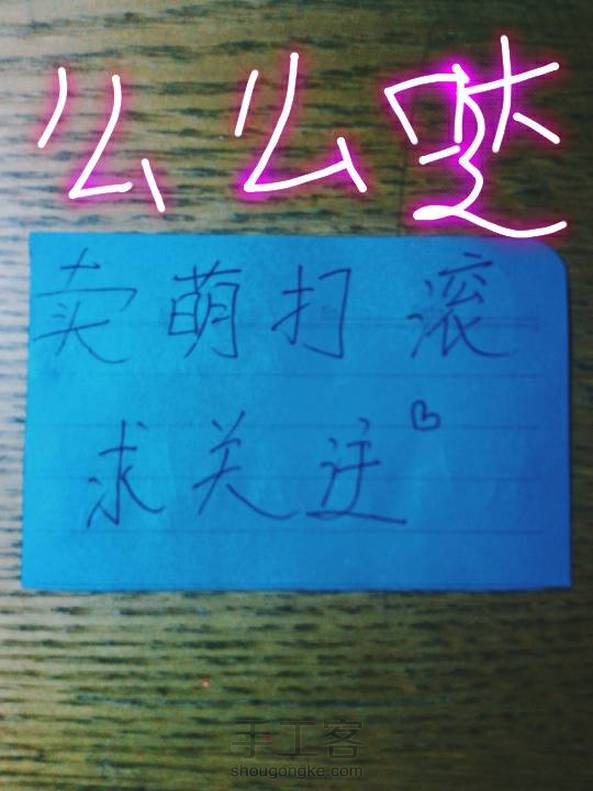 么么哒
卖萌打滚
求关注
手工客
shougongke.com